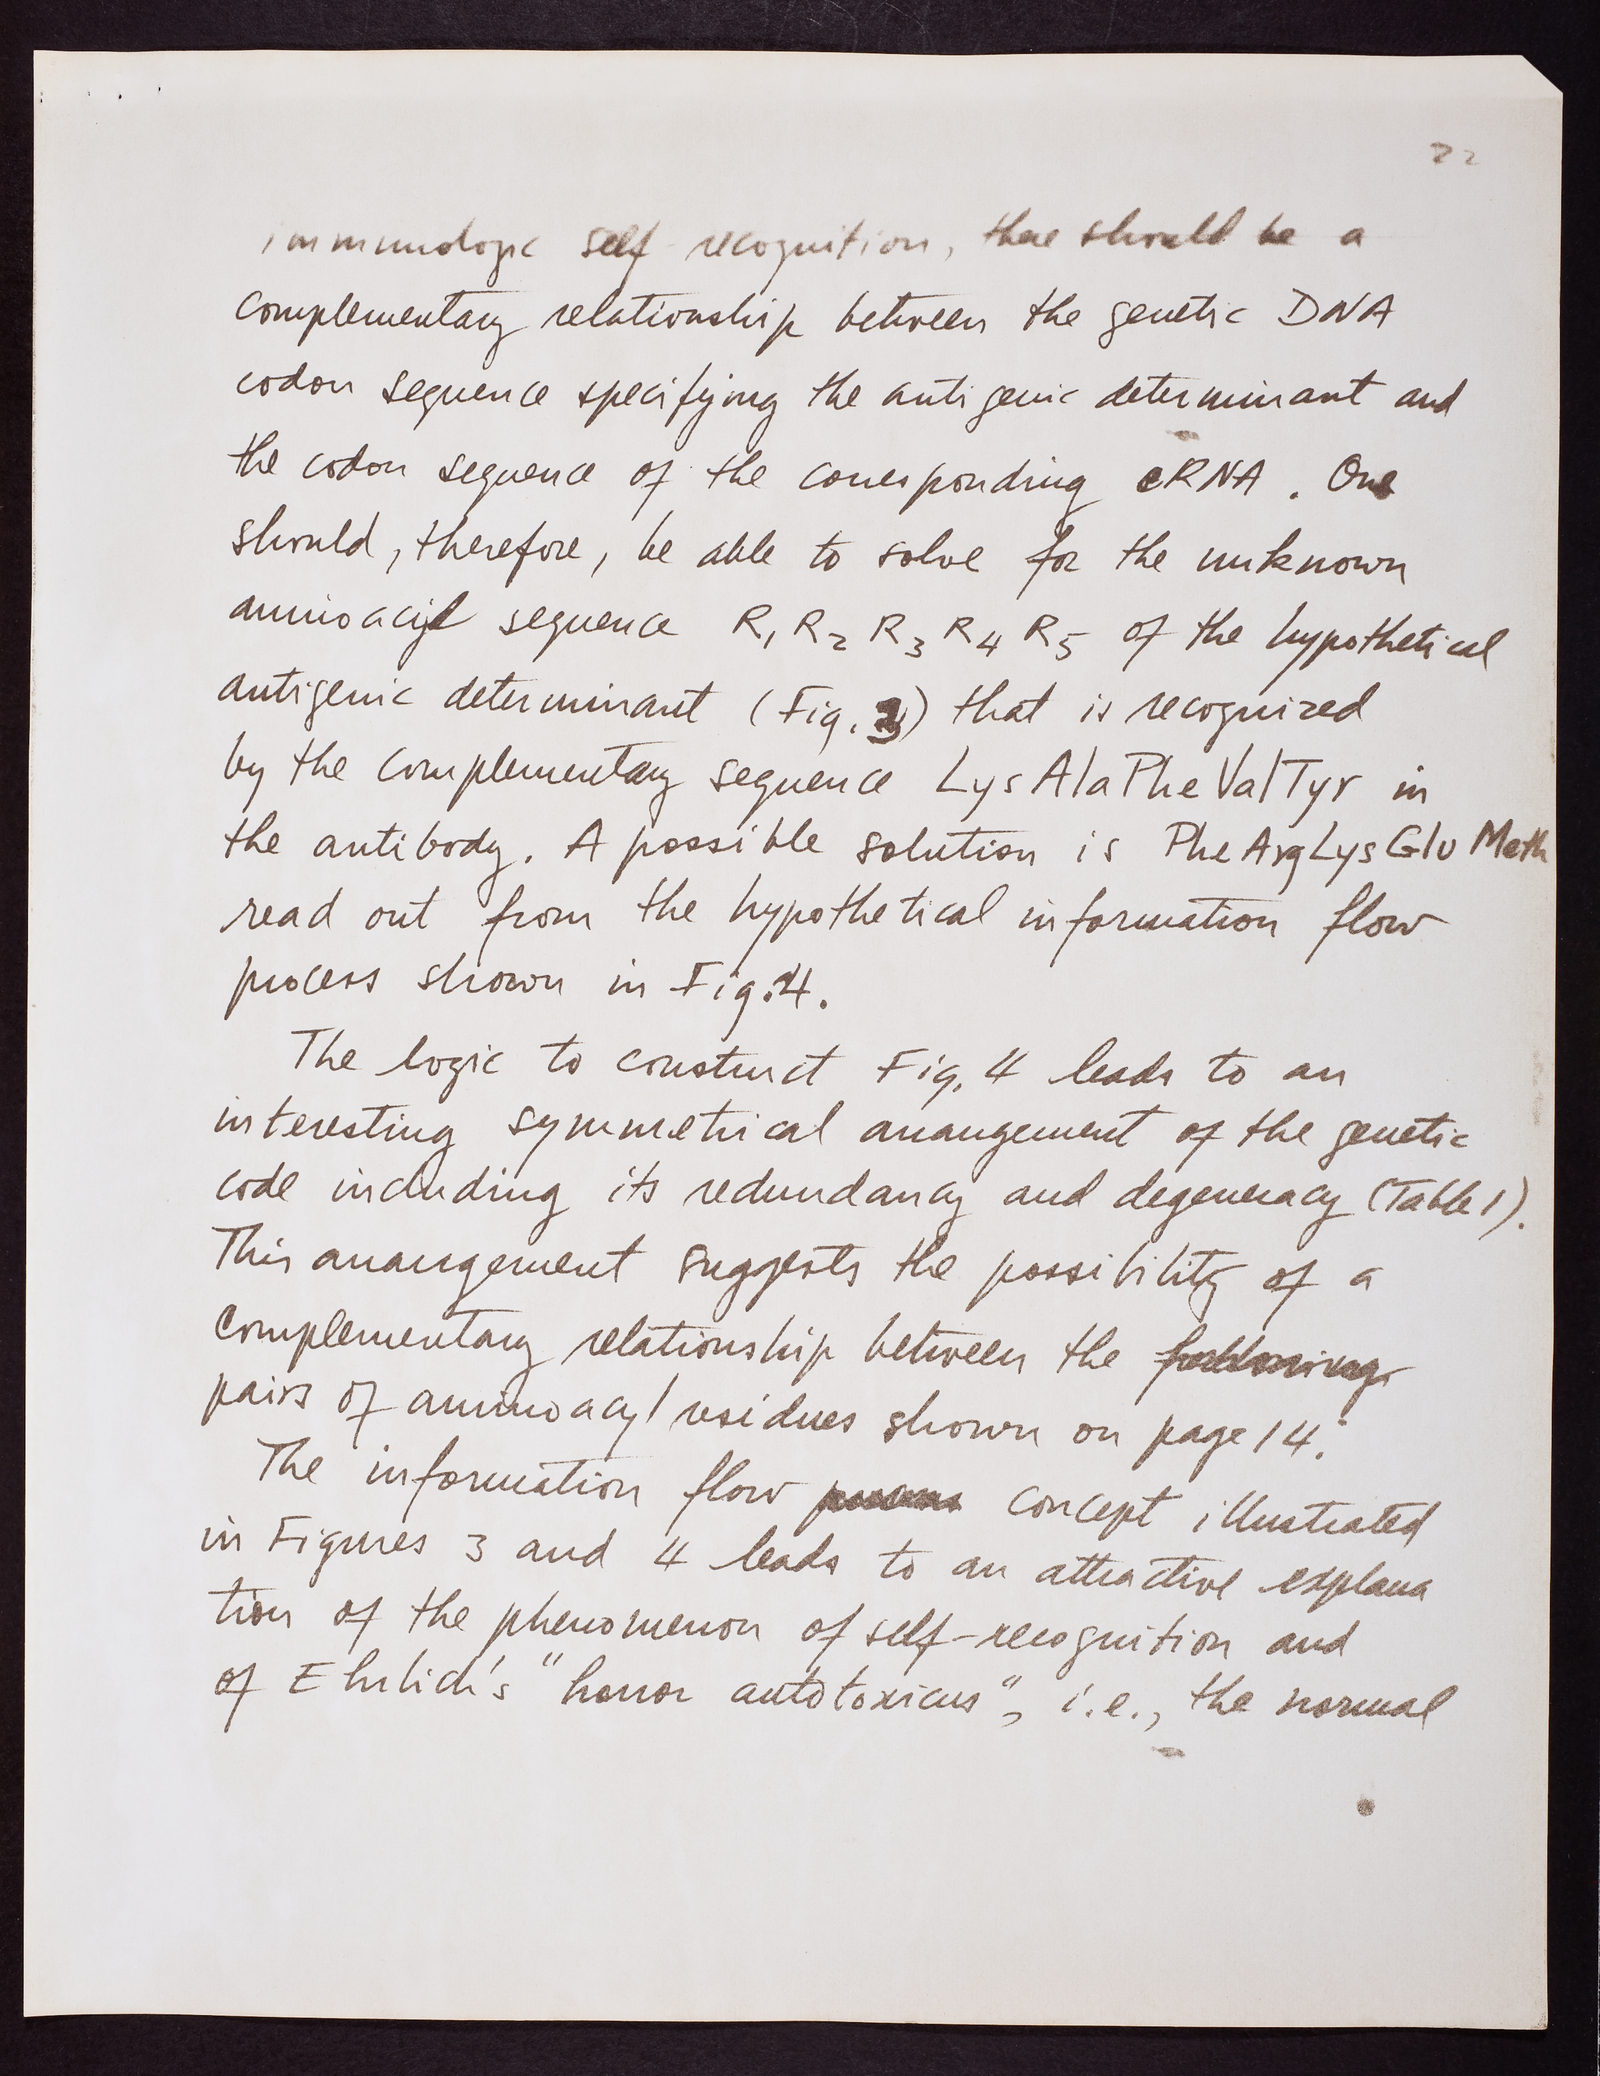 22
immunologic self recognition, there should be a
complementary relationship between the genetic DNA
codon sequence specifying the antigenic determinant and
the codon sequence of the corresponding cRNA. One
should, therefore, be able to solve for the unknown
aminoacyl sequence R₁ R₂ R₃ R₄ R₅ of the hypothetical
antigenic determinant (Fig. 3) that is recognized
by the complementary sequence LysAlaPheValTyr in
the antibody. A possible solution is PheArgLysGluMeth
read out from the hypothetical information flow
process shown in Fig. 4.
The logic to construct Fig. 4 leads to an
interesting symmetrical arrangement of the genetic
code including its redundancy and degeneracy (Table 1).
This arrangement suggests the possibility of a
complementary relationship between the following
pairs of aminoacyl residues shown on page 14.
The information flow process concept illustrated
in Figures 3 and 4 leads to an attractive explana
tion of the phenomenon of self-recognition and
of Ehrlich's "horror autotoxicus", i.e., the normal